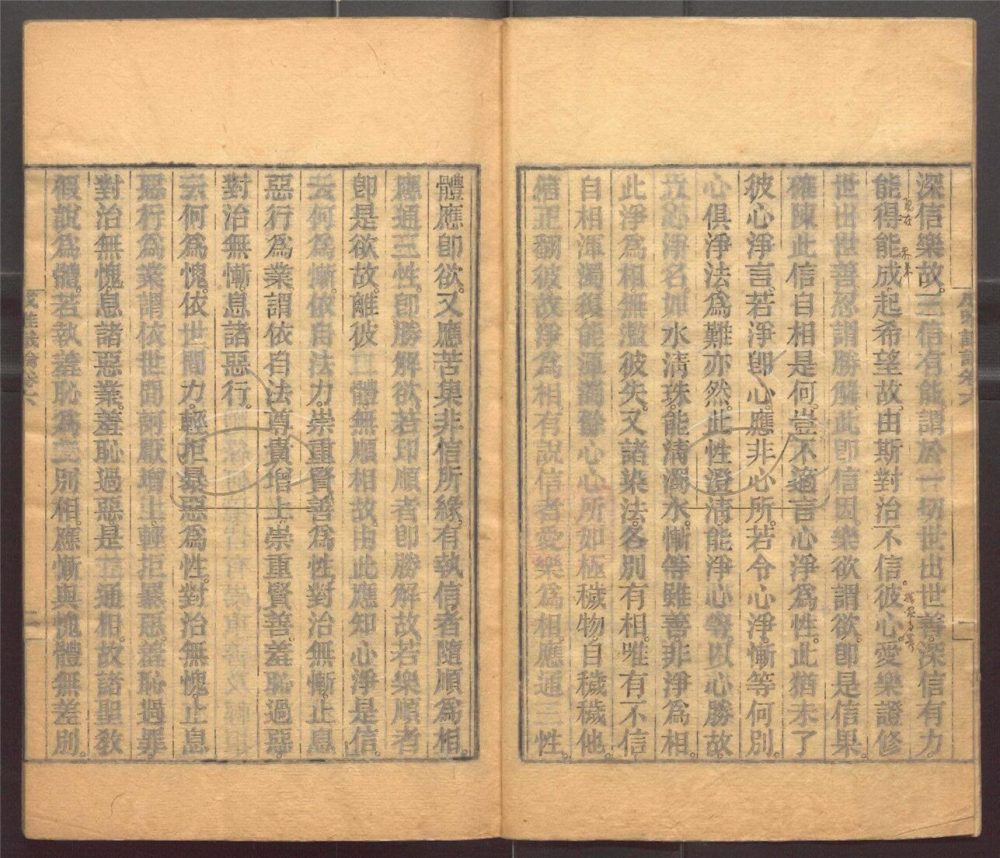 深信樂故。三信有能謂於一切世出世善。深信有力
能得能成起希望故。由斯對治不信彼心愛樂證修
世出世善忍謂勝解。此即信因。樂欲謂欲。即是信果。
確陳此信自相是何。豈不適言心淨為性。此猶未了
彼心淨言。若淨即心。應非心所。若令心淨。慚等何別。
心俱淨法為難亦然。此性澄清能淨心等以心勝故
立心淨名如水清珠。能清濁水。慚等雖善非淨為相。
此淨為相無濫彼失。又諸染法。各別有相。唯有不信
自相渾濁復能渾濁餘心心所如極穢物自穢穢他。
信正翻彼故淨為相。有說信者愛樂為相。應通三性。
體應即欲。又應苦集非信所緣。有執信者隨順為相。
應通三性。即勝解欲。若印順者即勝解故。若樂順者
即是欲故。離彼二體無順相故。由此應知心淨是信
云何為慚。依自法力崇重賢善為性。對治無慚。止息
惡行為業謂依自法尊貴增上崇重賢善。羞恥過惡
對治無慚。息諸惡行。
云何為愧。依世間力。輕拒暴惡為性。對治無愧。止息
惡行為業謂依世間訶厭增上輕拒暴惡。羞恥過罪
對治無愧。息諸惡業。羞恥過惡是二通相。故諸聖教
假說為體。若執羞恥為二別相。應慚與愧體無差別。
成唯識論卷六
二